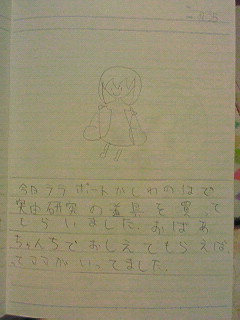 今日ララポートかしわのはで
自由研究の道具を買って
もらいました。おばあ
ちゃんちでおしえてもらえば
ってママがいってました。